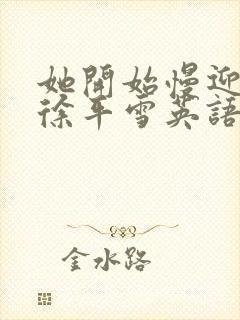 她開始慢迎
徐平雪英語
金水路